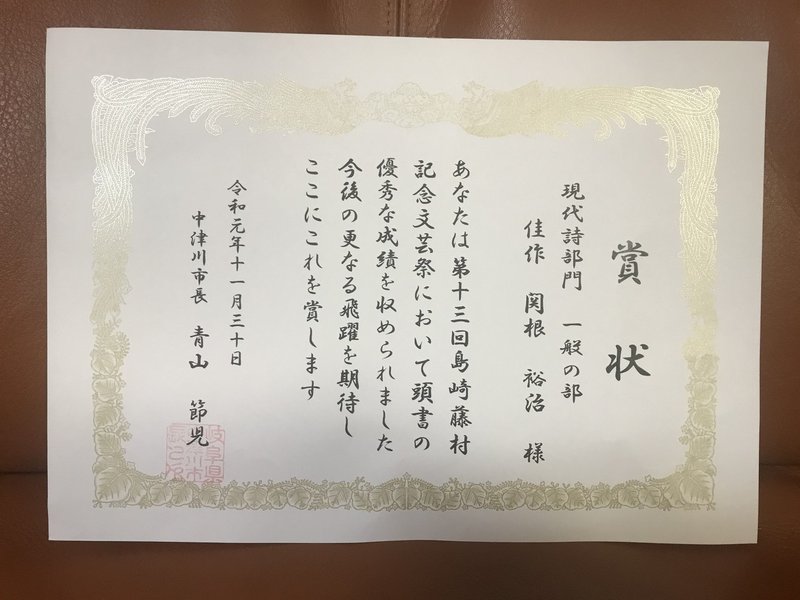 賞状
現代詩部門 一般の部
佳作 関根 裕治 様
あなたは第十三回島崎藤村
記念文芸祭において頭書の
優秀な成績を収められました
今後の更なる飛躍を期待し
ここにこれを賞します
令和元年十一月三十日
中津川市長 青山 節児